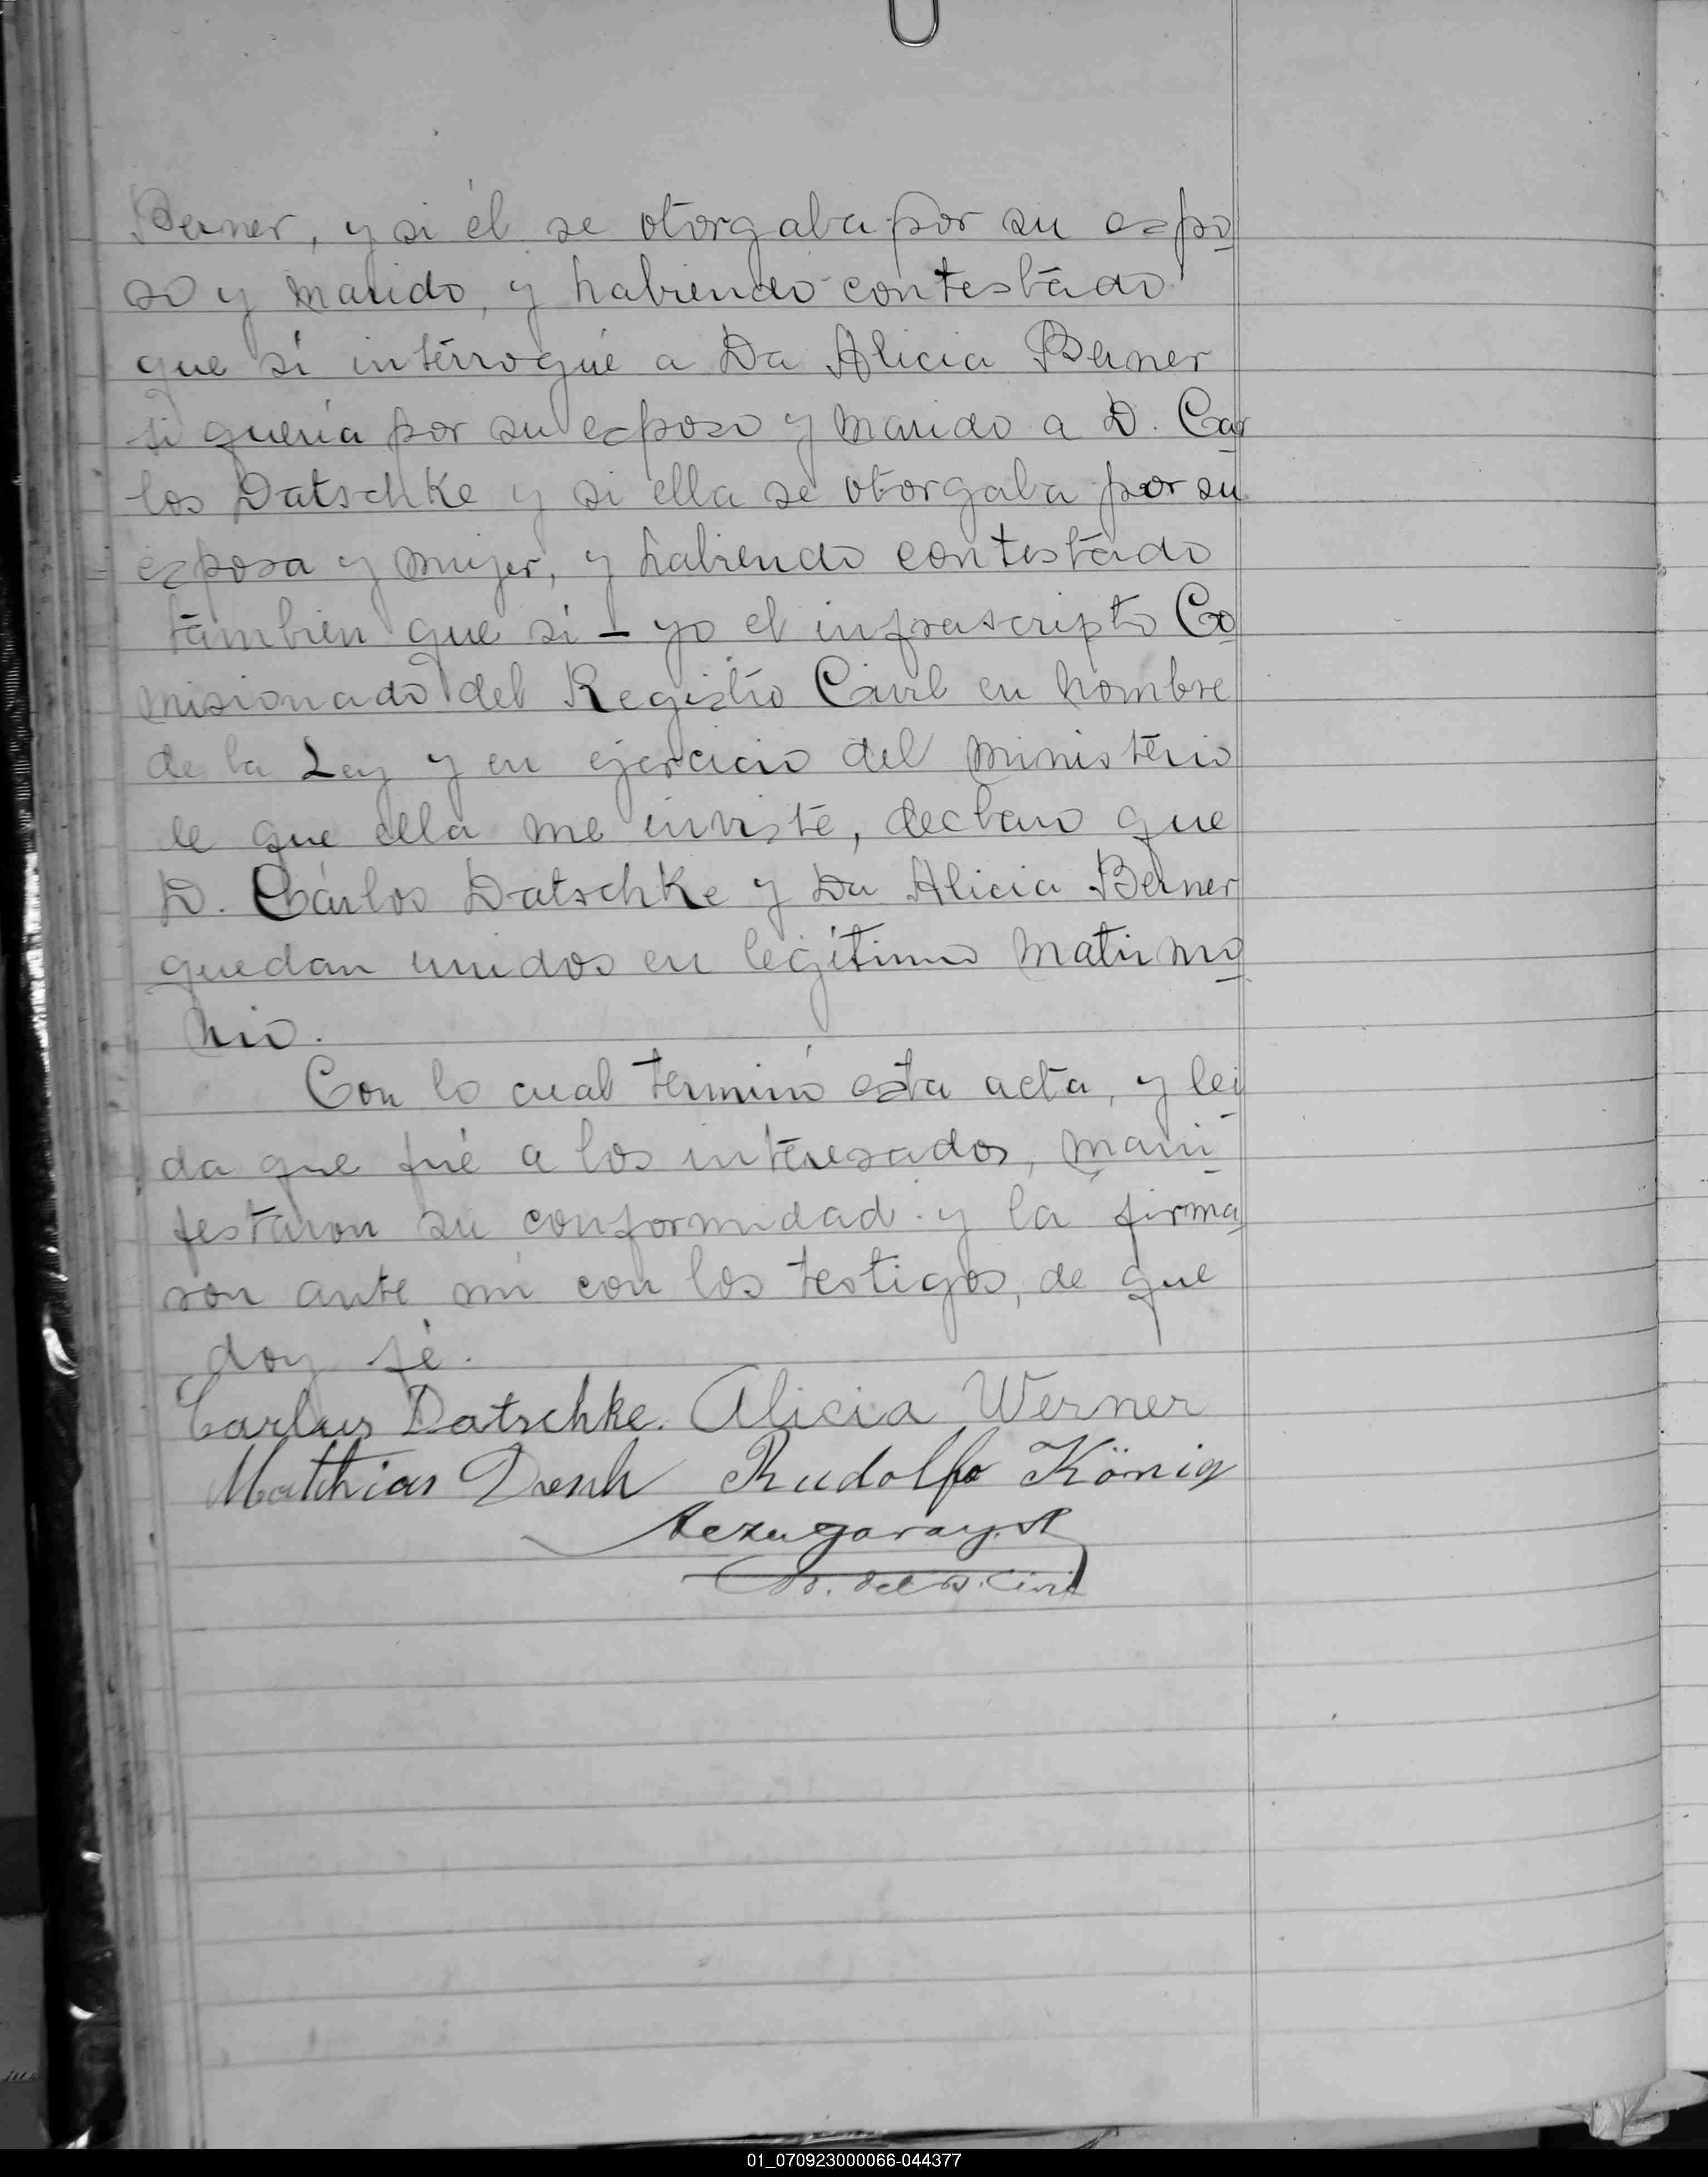 Berner, y si él se otorgaba por su espo
so y marido, y habiendo contestado
que sí interrogué a Da Alicia Berner
si quería por su esposo y marido a D. Car
los Datschke y si ella se otorgaba por su
esposa y mujer, y habiendo contestado
tambien que sí - yo el infrascripto Co
misionado del Registro Civil en nombre
de la Ley y en ejercicio del ministerio
de que ella me inviste, declaro que
D. Cárlos Datschke y Da Alicia Berner
quedan unidos en legítimo matrimo
nio.
Con lo cual terminó esta acta, y lei
da que fué a los interesados, mani
festaron su conformidad y la firma
ron ante mi con los testigos, de que
doy fé.
Carlus Datschke. Alicia Werner
Matthias Rudolfo König
del R. Civil
01_070923000066-044377